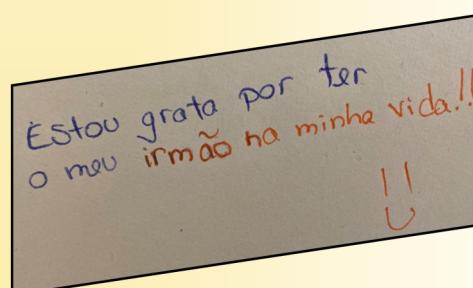 Estou grata por ter
o meu irmão na minha vida!!